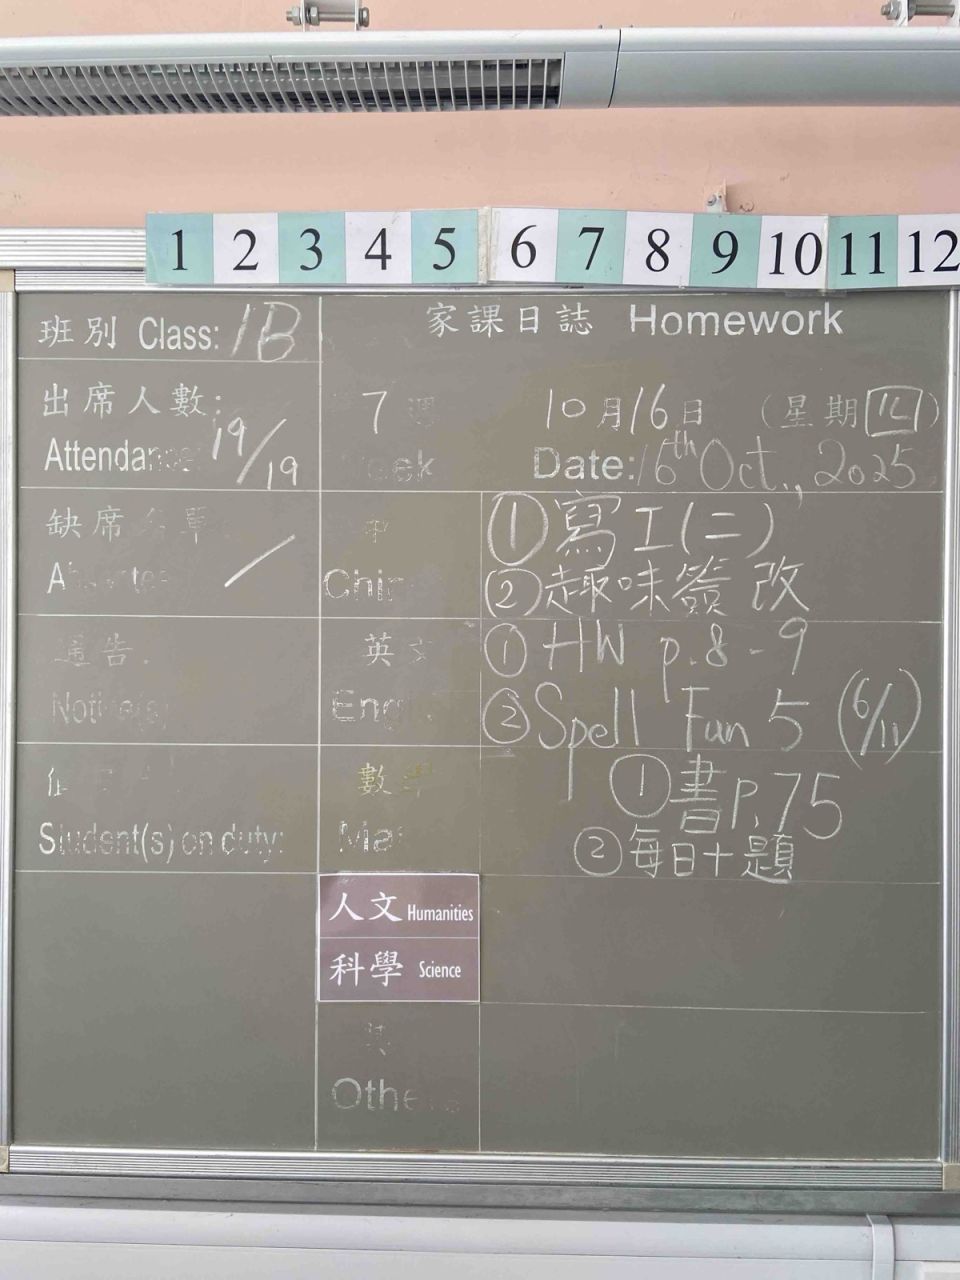 1 2 3 4 5 6 7 8 9 10 11 12
班別 Class: 1B
家課日誌 Homework
出席人數:
Attendance: 19/19
7 週
Week
10月16日 (星期四)
Date: 16th Oct., 2025
缺席名單
/
中
Chin
① 寫工(二)
② 趣味簽 改
通告.
Notice(s)
英文
Engl
① HW p.8-9
② Spell Fun 5 (6/11)
Student(s) on duty:
數學
Ma
① 書P.75
② 每日十題
人文 Humanities
科學 Science
其
Others